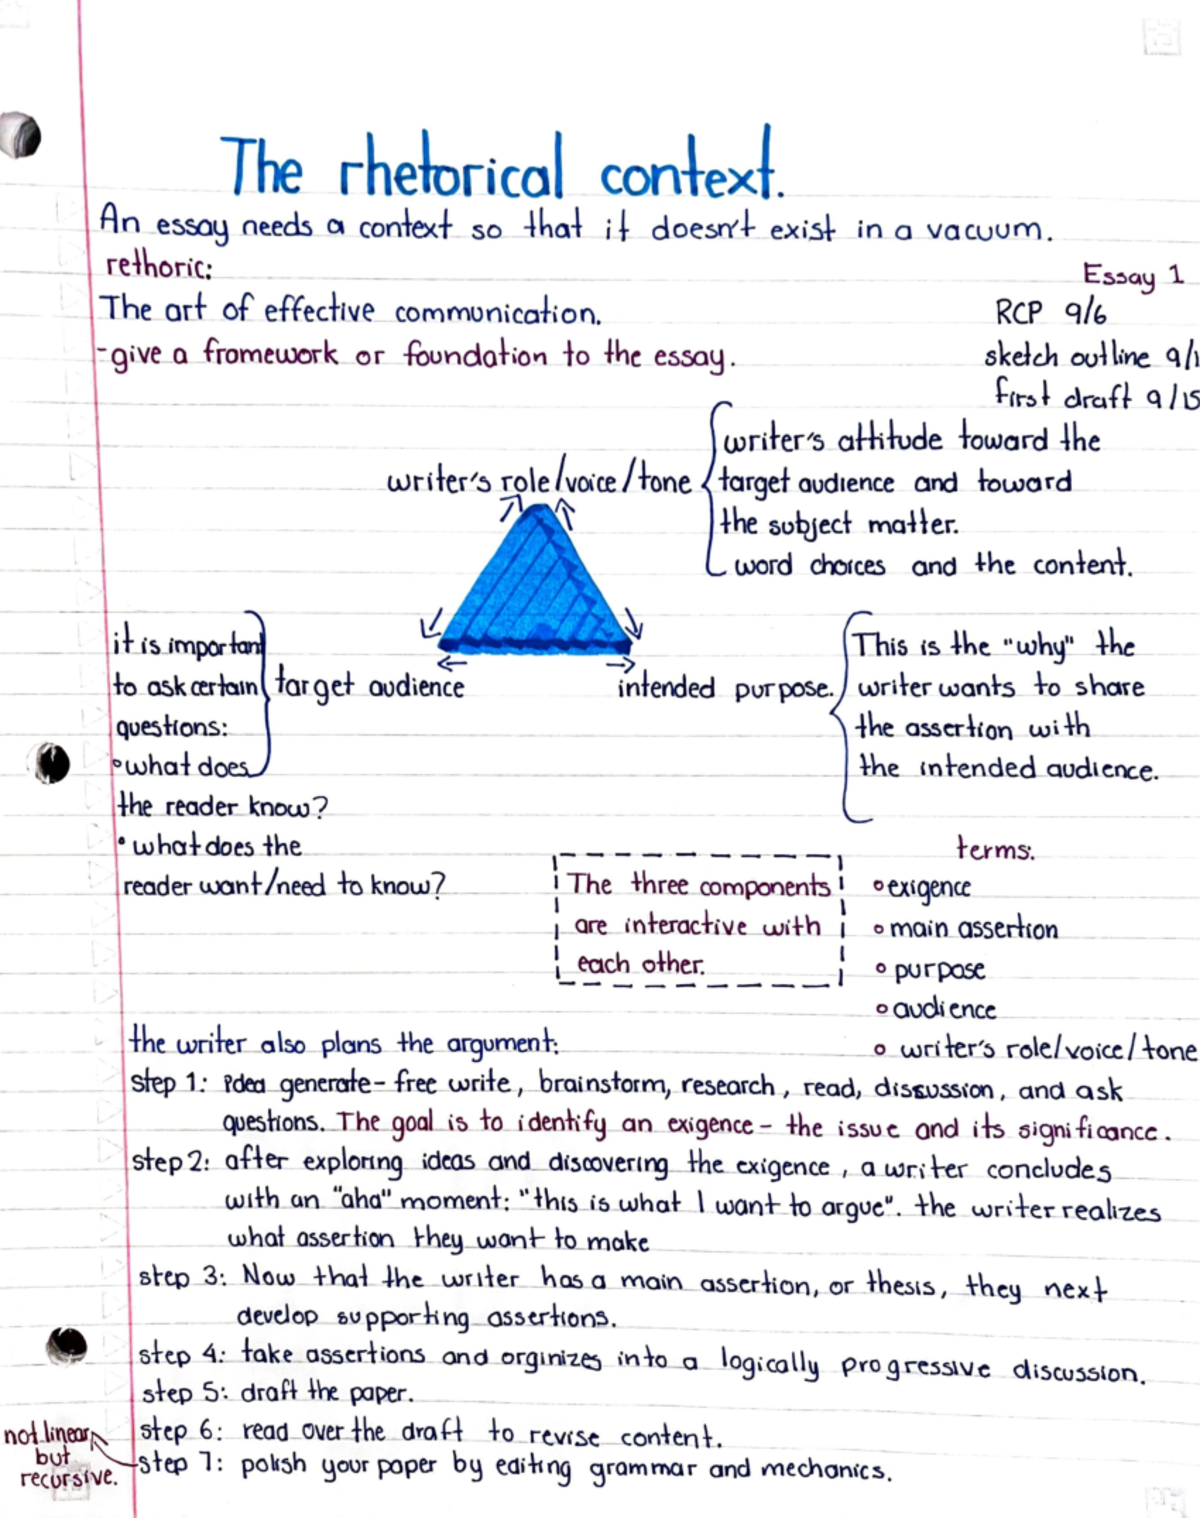 The rhetorical context.
An essay needs a context so that it doesn't exist in a vacuum.
rethoric:
The art of effective communication.
-give a fromework or foundation to the essay.
Essay 1
RCP 9/6
sketch outline 9/1
first draft 9/15
writer's role/voice/tone
writer's attitude toward the
target audience and toward
the subject matter.
word choices and the content.
it is important
to ask certain
questions:
•what does
the reader know?
•what does the
reader want/need to know?
target audience
intended purpose.
This is the "why" the
writer wants to share
the assertion with
the intended audience.
The three components
are interactive with
each other.
terms:
•exigence
•main assertion
•purpose
•audience
•writer's role/voice/tone
the writer also plans the argument:
step 1: idea generate- free write, brainstorm, research, read, discussion, and ask
questions. The goal is to identify an exigence - the issue and its significance.
step 2: after exploring ideas and discovering the exigence, a writer concludes
with an "aha" moment: "this is what I want to argue". the writer realizes
what assertion they want to make
step 3: Now that the writer has a main assertion, or thesis, they next
develop supporting assertions.
step 4: take assertions and orginizes into a logically progressive discussion.
step 5: draft the paper.
step 6: read over the draft to revise content.
step 7: polish your paper by editing grammar and mechanics.
not linear
but
recursive.